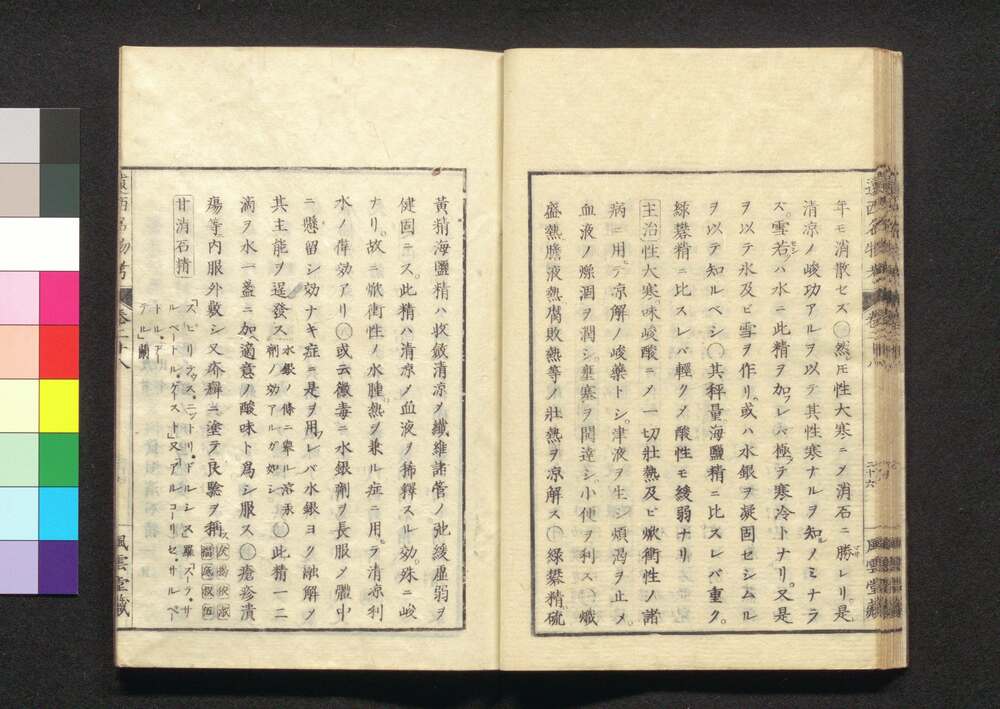 年モ消散セズ〇然𪜈性大寒ニ〆消石ニ勝レリ是
清凉ノ峻功アルヲ以テ其性寒ナルヲ知ノミナラ
ズ雪若ハ水ニ此精ヲ加フレバ極テ寒冷トナリ又是
ヲ以テ氷及ビ雪ヲ作リ或ハ水銀ヲ凝固セシムル
ヲ以テ知ルベシ〇其秤量海鹽精ニ比スレバ重ク
綠礬精ニ比スレバ輕ク〆酸性モ緩弱ナリ
主治 性大寒味峻酸ニ〆一切壯熱及ビ焮衝性ノ諸
病ニ用テ凉解ノ峻藥トシ津液ヲ生シ煩渴ヲ止〆
血液ノ燥涸ヲ潤シ壅塞ヲ開達シ小便ヲ利ス〇熾
盛熱膽液熱腐敗熱等ノ壯熱ヲ凉解ス〇綠礬精硫
二十六
風雲堂藏
黃精海鹽精ハ收斂清凉ヲ纖維諸管ノ弛緩虛弱ヲ
健固ニス此精ハ清凉ノ血液ヲ稀釋スル効殊ニ峻
ナリ故ニ焮衝性ノ水腫熱ヲ兼ル症ニ用テ清凉利
水ノ偉効アリ〇或云黴毒ニ水銀劑ヲ長服〆體中
ニ懸留シ効ナキ症ニ是ヲ用レバ水銀ヨク融解〆
其主能ヲ逞發ス水銀ノ條ニ舉ル溶汞劑ノ効アルガ如シ〇此精一二
滴ヲ水一盞ニ加適意ノ酸味ト爲シ服ス〇瘡疹潰
瘍等內服外敷シ又疥癬ニ塗テ良驗ヲ稱ス
甘消石精 「スピリティュス、ニットリ・ドルシス」羅「スーテ・サルペートル・ゲイスト」又「アルコーリセサルペートル・アーテル」蘭
遠西名物考
卷二十八
風雲堂藏